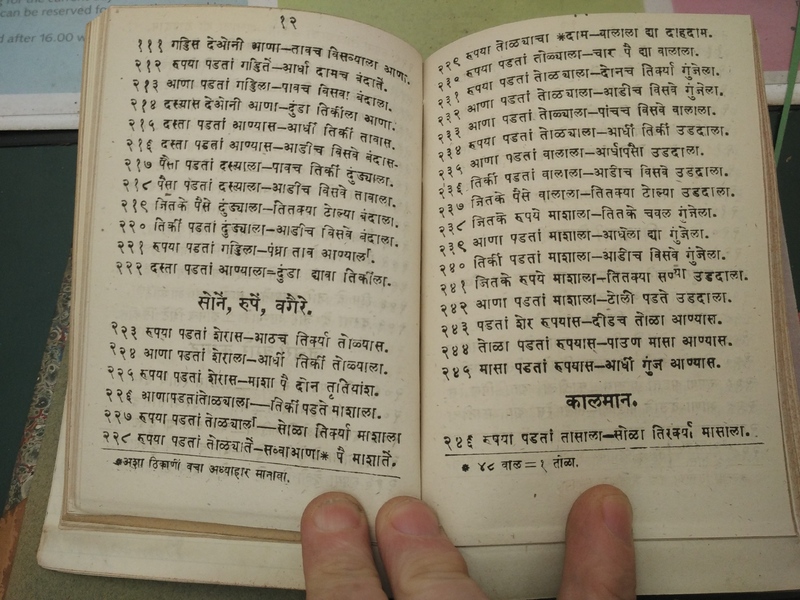 ng for the current
can be reserved for
d after 16.00 w
१२
१११ गड्डिस देओनी आणा—तावच विसव्याला आणा.
२१२ रुपया पडतां गड्डितें—आर्धा दामच बंदातें.
२१३ आणा पडतां गड्डिला—पावच विसवा बंदाला.
२१४ दस्त्यास देओनी आणा—दुंडा तिर्कीला आणा.
२१५ दस्ता पडतां आण्यास—आर्धी तिर्की तावास.
२१६ दस्ता पडतां आण्यास—आडीच विसवे बंदास.
२१७ पैसा पडतां दस्त्याला—पावच तिर्की दुंड्याला.
२१८ पैसा पडतां दस्त्याला—आडीच विसवे तावाला.
२१९ जितके पैसे दुंड्याला—तितक्या टोल्या बंदाला.
२२० तिर्की पडतां दुंड्याला—आडीच विसवे बंदाला.
२२१ रुपया पडतां गड्डिला—पंध्रा ताव आण्याला.
२२२ दस्ता पडतां आण्याला=दुंडा द्यावा तिर्कीला.
सोनें, रुपें, वगैरे.
२२३ रुपया पडतां शेरास—आठच तिर्क्या तोळ्यास.
२२४ आणा पडतां शेराला—आर्धी तिर्की तोळ्याला.
२२५ रुपया पडतां शेरास—माशा पै दोन तृतियांश.
२२६ आणापडतांतोळ्याला—तिर्की पडते माशाला.
२२७ रुपया पडतां तोळ्याला—सोळा तिर्क्या माशाला
२२८ रुपया पडतां तोळ्यातें—सव्वाआणा* पै माशातें.
*अशा ठिकाणीं वचा अध्याहार मानावा.
२२९ रुपया तोळ्याचा *दाम—वालाला द्या दाहदाम.
२३० रुपया पडतां तोळ्याला—चार पै द्या वालाला.
२३१ रुपया पडतां तोळ्याला—दोनच तिर्क्या गुंजेला.
२३२ आणा पडतां तोळ्याला—आडीच विसवे गुंजेला.
२३३ आणा पडतां तोळ्याला—पांचच विसवे वालाला.
२३४ रुपया पडतां तोळ्याला—आर्धी तिर्की उडदाला.
२३५ आणा पडतां वालाला—आर्धापैसा उडदाला.
२३६ तिर्की पडतां वालाला—आडीच विसवे उडदाला.
२३७ जितके पैसे वालाला—तितक्या टोल्या उडदाला.
२३८ जितके रुपये माशाला—तितके चवल गुंजेला.
२३९ आणा पडतां माशाला—आधेला द्या गुंजेला.
२४० तिर्की पडतां माशाला—आडीच विसवे गुंजेला.
२४१ जितके रुपये माशाला—तितक्या सण्या उडदाला.
२४२ आणा पडतां माशाला—टोली पडते उडदाला.
२४३ पडतां शेर रुपयास—दीडच तोळा आण्यास.
२४४ तोळा पडतां रुपयास—पाउण मासा आण्यास.
२४५ मासा पडतां रुपयास—आर्धी गुंज आण्यास.
कालमान.
२४६ रुपया पडतां तासाला—सोळा तिरर्क्या मासाला.
* ४८ वाल = १ तोळा.